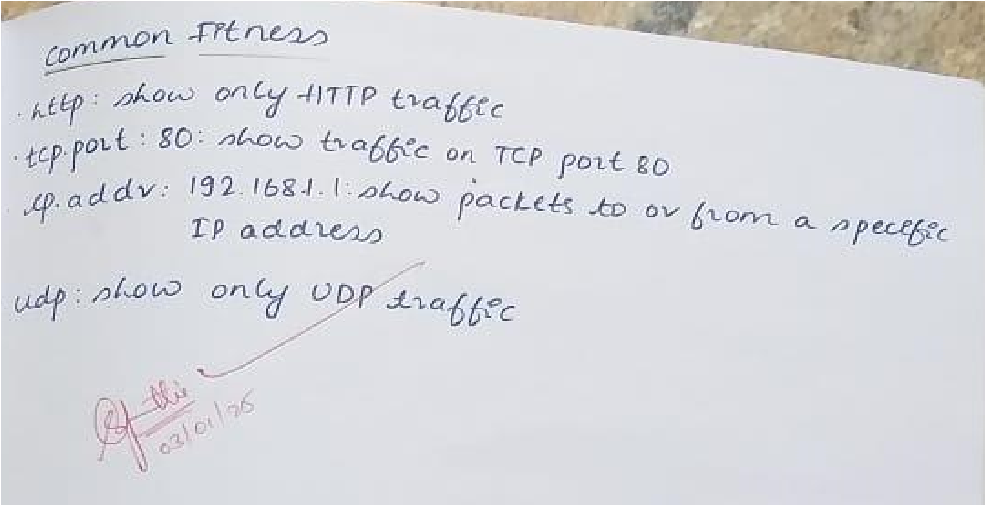 common Fitness
. http: show only HTTP traffic
. tcp.port: 80: show traffic on TCP port 80
. ip.addr: 192.168.1.1: show packets to or from a specific
IP address
udp: show only UDP traffic
03/01/26